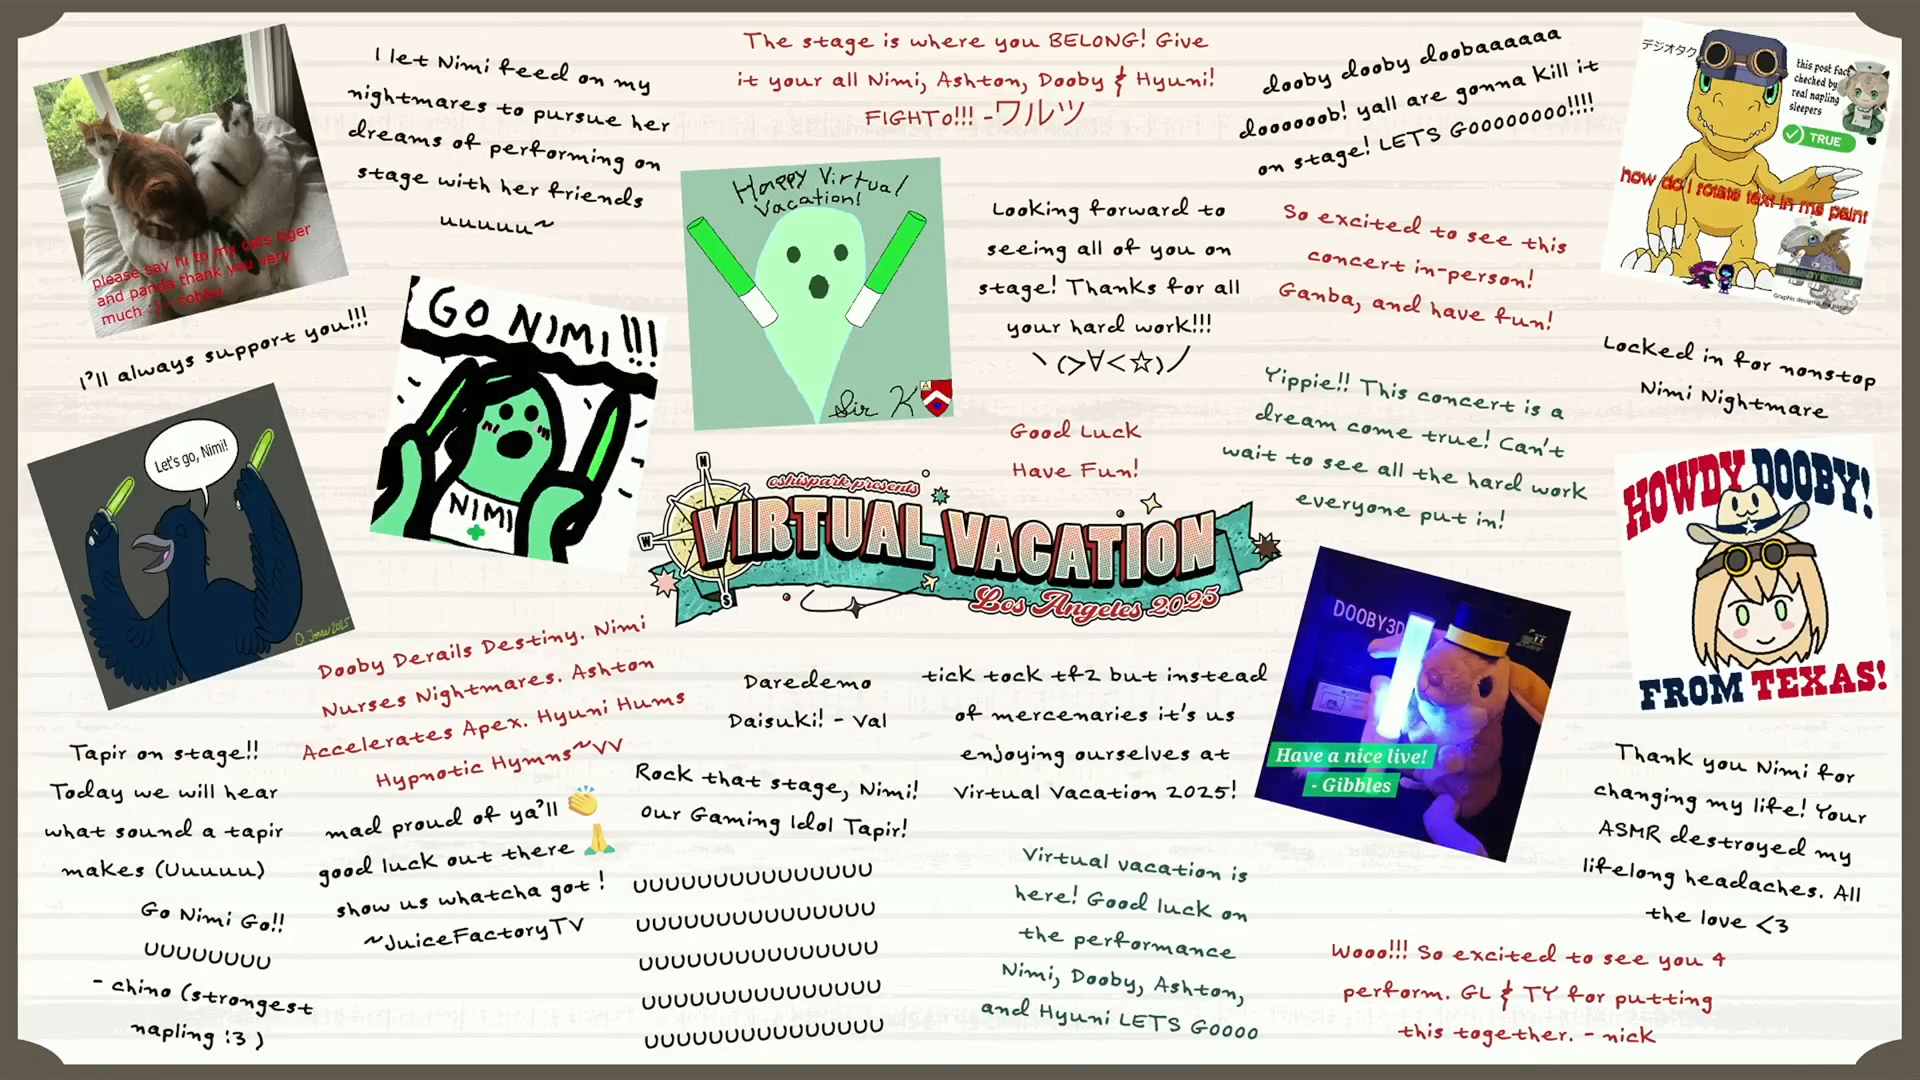 please say hi to my cats tiger
and panda thank you very
much :) - cobby
I let Nimi feed on my
nightmares to pursue her
dreams of performing on
stage with her friends
uuuuu~
The stage is where you BELONG! Give
it your all Nimi, Ashton, Dooby & Hyuni!
FIGHTO!!! -ワルツ
dooby dooby doobaaaaaa
doooooob! yall are gonna kill it
on stage! LETS GOOOOOOOO!!!!
デジオタク
this post fact
checked by
real napling
sleepers
TRUE
how do I rotate text in ms paint
Graphic design is my passion
I'll always support you!!!
GO NIMI!!!
NIMI
Happy Virtual
Vacation!
Sir K
Looking forward to
seeing all of you on
stage! Thanks for all
your hard work!!!
ヽ(>∀<☆)ノ
So excited to see this
concert in-person!
Ganba, and have fun!
Locked in for nonstop
Nimi Nightmare
Let's go, Nimi!
Good Luck
Have Fun!
Yippie!! This concert is a
dream come true! Can't
wait to see all the hard work
everyone put in!
HOWDY DOOBY!
FROM TEXAS!
N
W
S
oshispark presents
VIRTUAL VACATION
Los Angeles 2025
Dooby Derails Destiny. Nimi
Nurses Nightmares. Ashton
Accelerates Apex. Hyuni Hums
Hypnotic Hymns~VV
Daredemo
Daisuki! - Val
tick tock tf2 but instead
of mercenaries it's us
enjoying ourselves at
Virtual Vacation 2025!
DOOBY3D
Have a nice live!
- Gibbles
Tapir on stage!!
Today we will hear
what sound a tapir
makes (Uuuuu)
mad proud of ya'll 👏
good luck out there 🙏
show us whatcha got !
~JuiceFactoryTV
Rock that stage, Nimi!
Our Gaming Idol Tapir!
Thank you Nimi for
changing my life! Your
ASMR destroyed my
lifelong headaches. All
the love <3
Go Nimi Go!!
UUUUUUUU
- chino (strongest
napling :3 )
UUUUUUUUUUUUUUU
UUUUUUUUUUUUUUU
UUUUUUUUUUUUUUU
UUUUUUUUUUUUUUU
UUUUUUUUUUUUUUU
Virtual vacation is
here! Good luck on
the performance
Nimi, Dooby, Ashton,
and Hyuni LETS GOOOO
Wooo!!! So excited to see you 4
perform. GL & TY for putting
this together. - nick